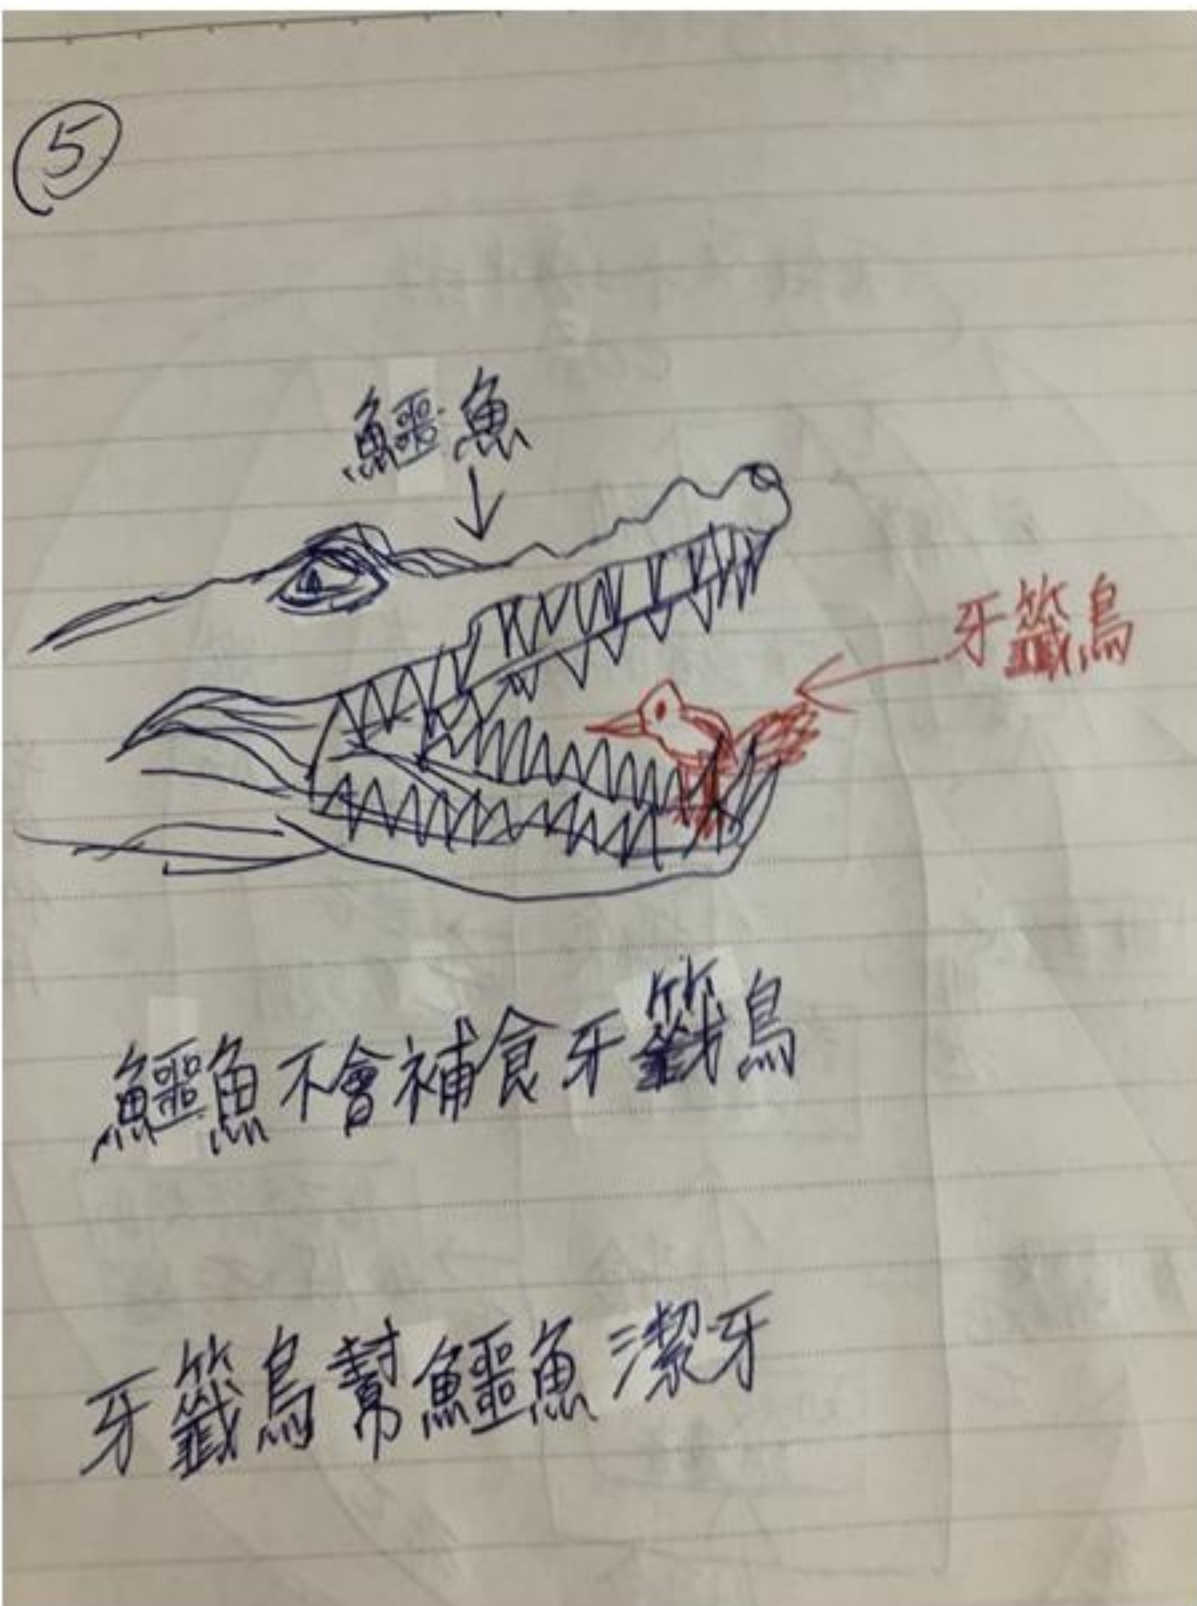 5
鱷魚
牙籤鳥
鱷魚不會補食牙籤鳥
牙籤鳥幫鱷魚潔牙